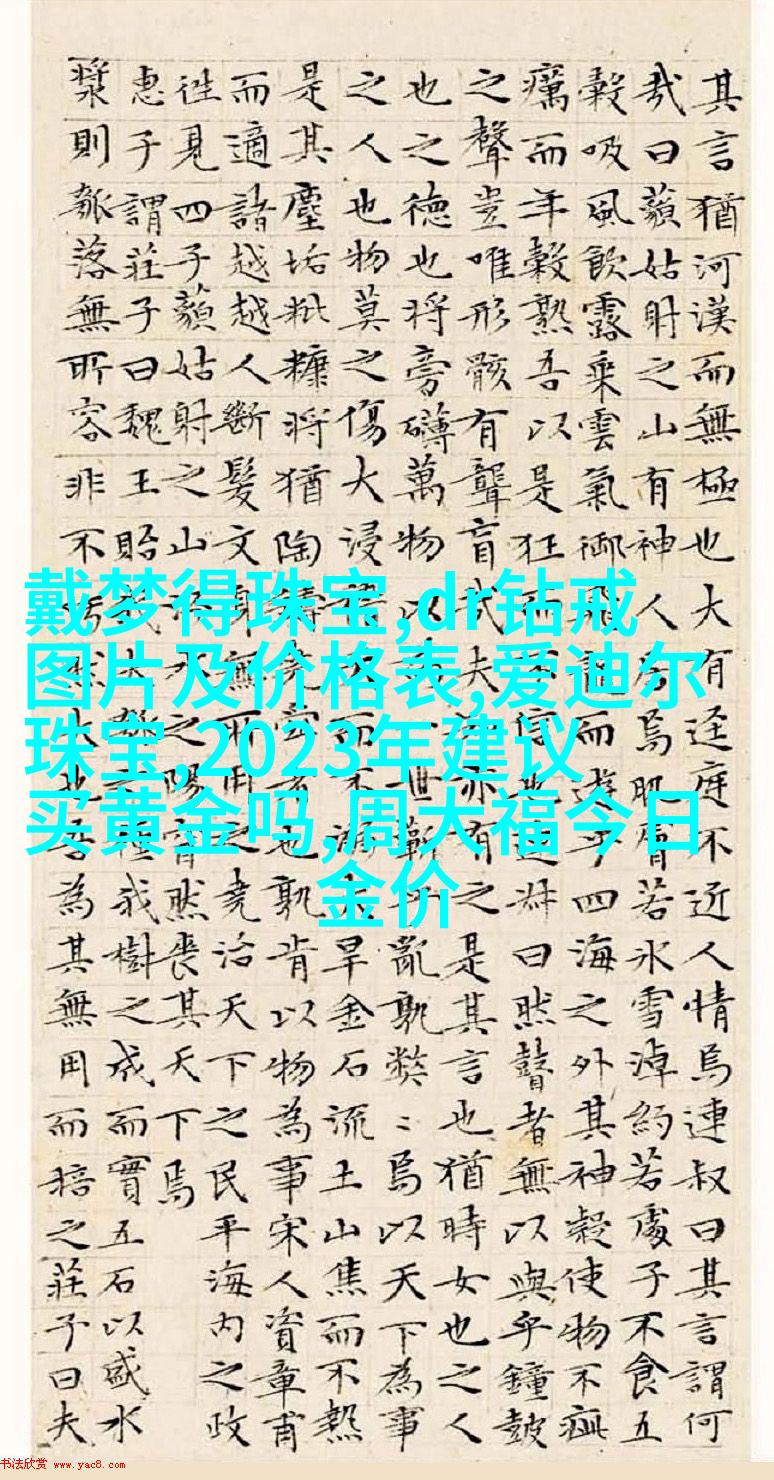 其言猶河漢而無極也大有迳庭不近人情焉連叔曰其言謂何
哉曰藐姑射之山有神人居焉肌膚若氷雪淖約若處子不食五
穀吸風飲露乘雲氣御飛龍而遊乎四海之外其神凝使物不疵
癘而年穀熟吾以是狂而不信也連叔曰然瞽者無以與乎鐘鼓
之聲豈唯形骸有聾盲哉夫知亦有之是其言也猶時女也之人
也之德也将旁礴萬物以為一世蘄乎亂孰弊〻焉以天下為事
之人也物莫之傷大浸稽天而不溺大旱金石流土山焦而不熱
是其塵垢粃糠将猶陶鑄堯舜者也孰肯以物為事宋人資章甫
而適諸越越人斷髮文身無所用之堯治天下之民平海内之政
往見四子藐姑射之山汾水之陽窅然喪其天下焉
惠子謂莊子曰魏王貽我大瓠之種我樹之成而實五石以盛水
漿則瓠落無所容非不呺然大也吾為其無用而掊之莊子曰夫
戴梦得珠宝,dr钻戒
图片及价格表,爱迪尔
珠宝,2023年建议
买黄金吗,周大福今日
金价
书法欣赏 www.yac8.com